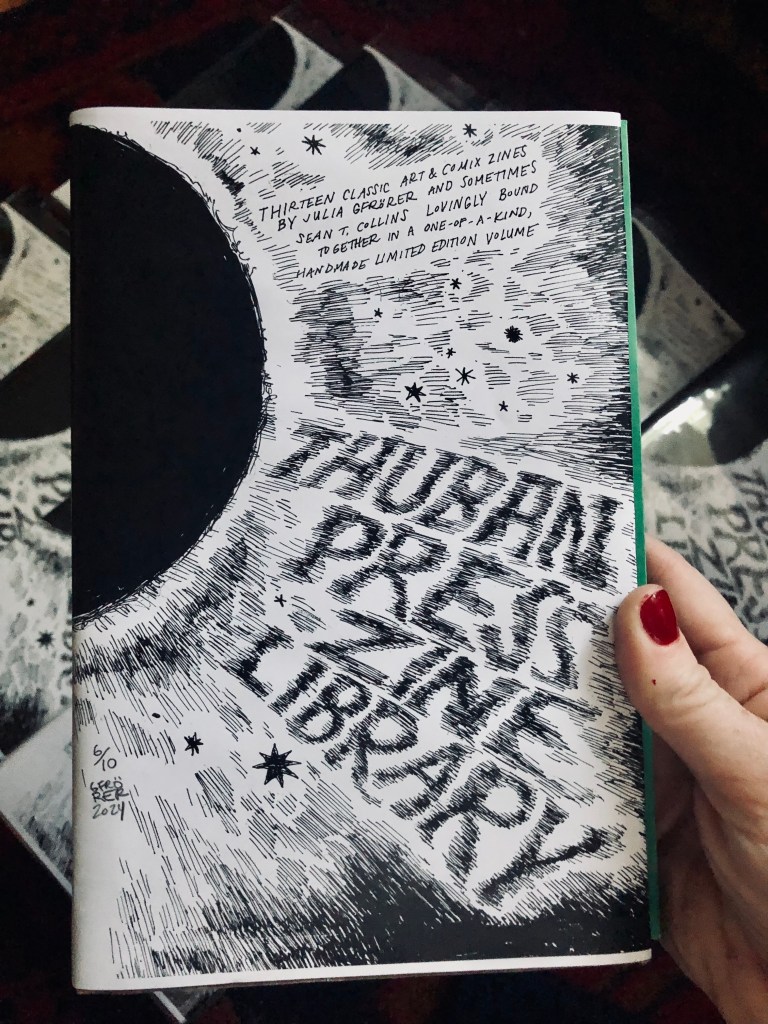 THIRTEEN CLASSIC ART & COMIX ZINES
BY JULIA GFRÖRER AND SOMETIMES
SEAN T. COLLINS LOVINGLY BOUND
TOGETHER IN A ONE-OF-A-KIND,
HANDMADE LIMITED EDITION VOLUME
THUBAN
PRESS
ZINE
LIBRARY
6/10
GFRÖ
RER
2024